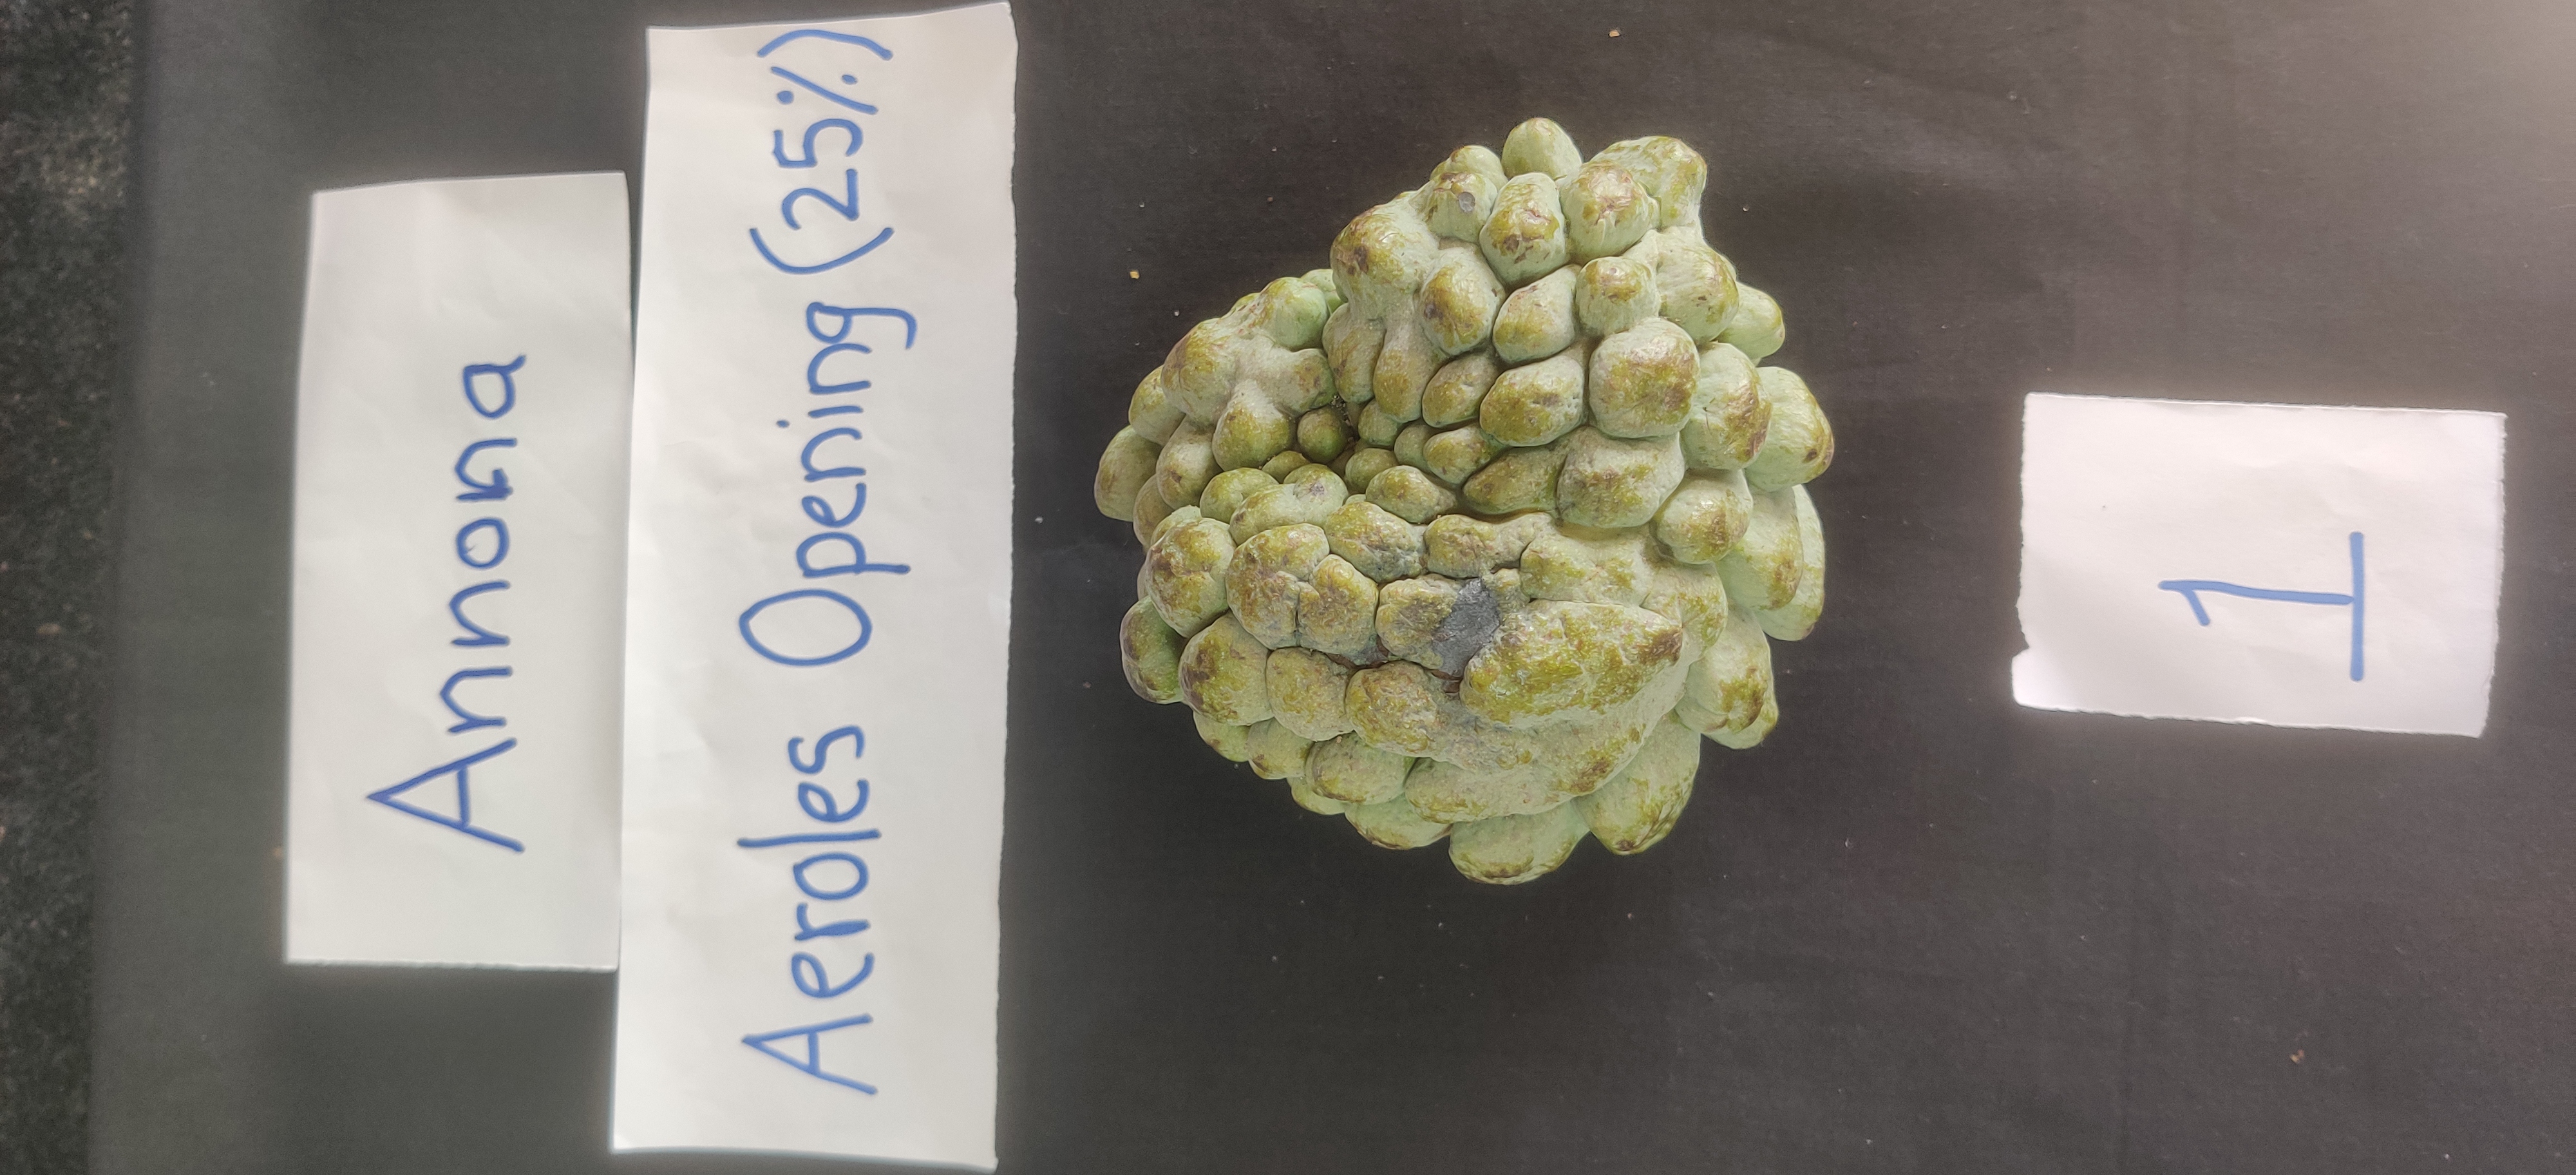 Annona
Aeroles Opening (25%)
1